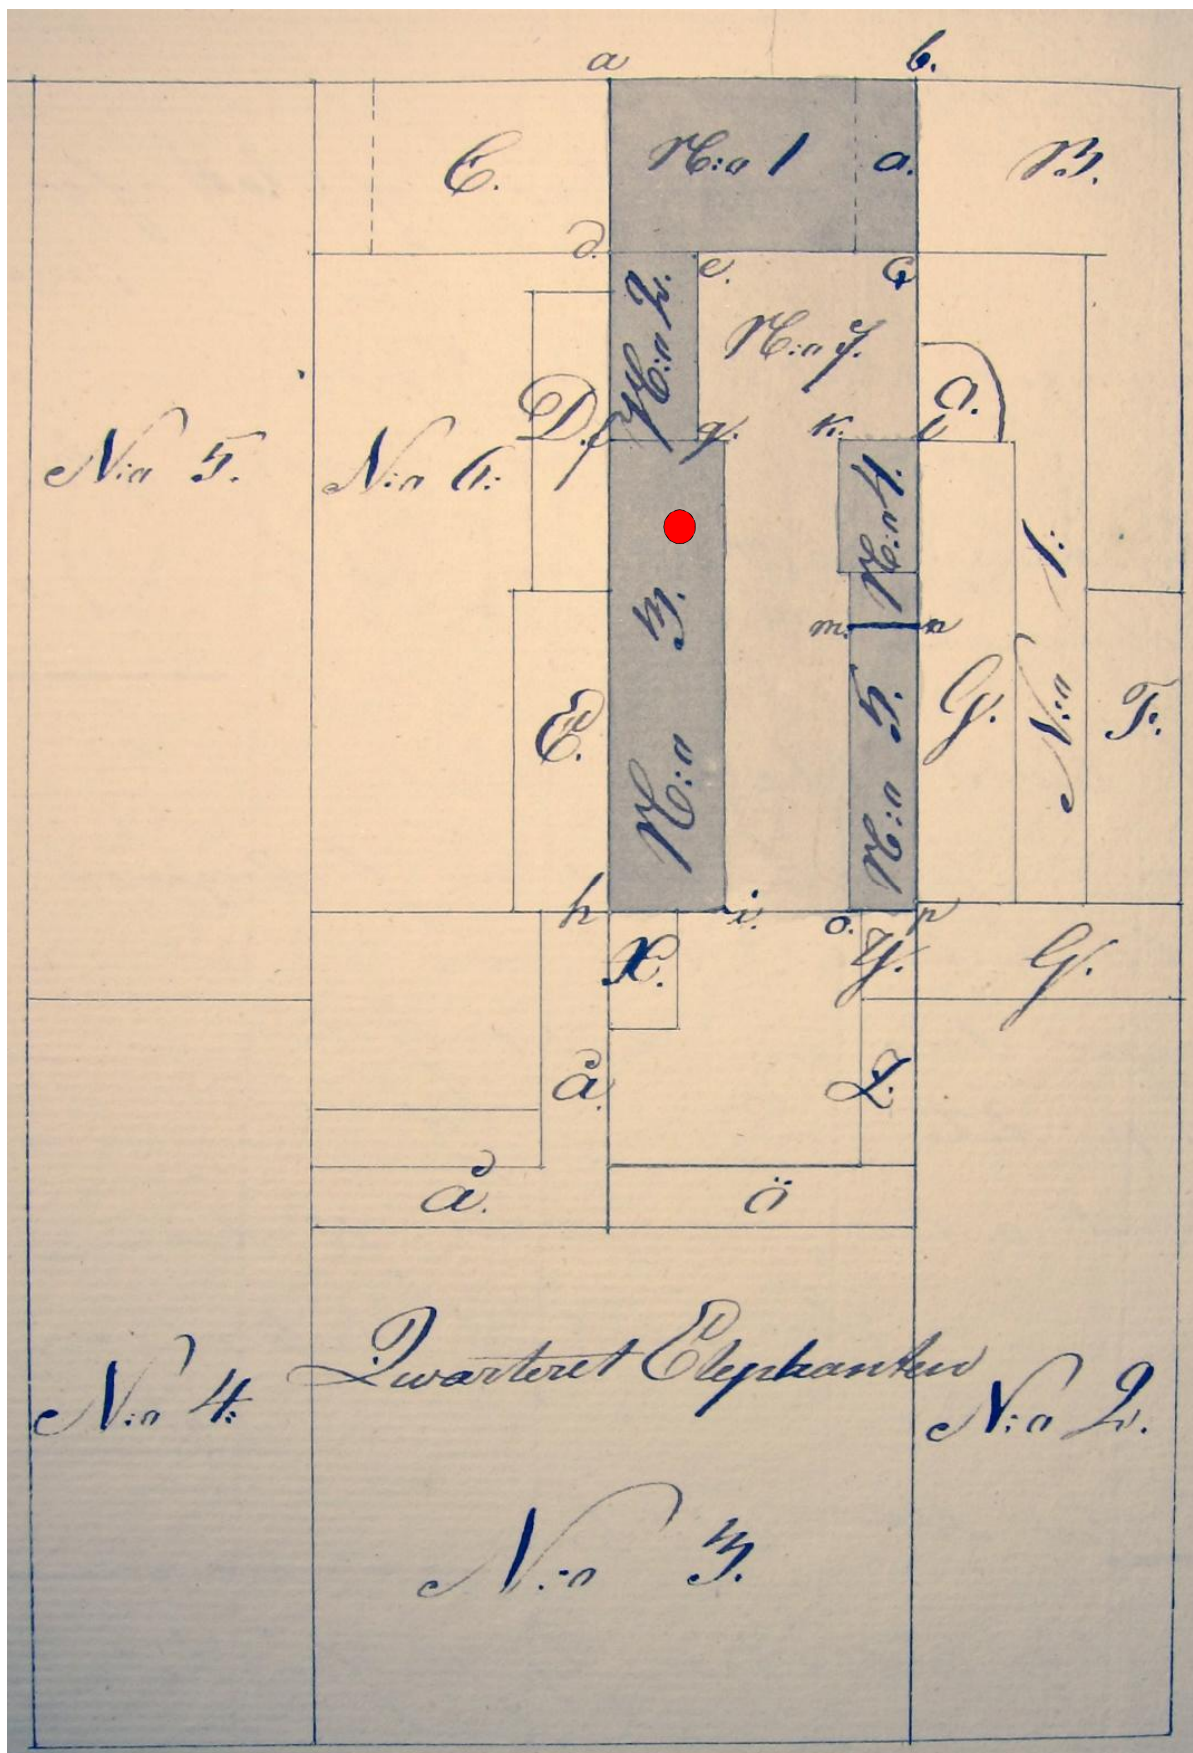 a b.
C. N:o 1 a. B.
d. e. c
N:o 2. N:o 7.
D. f g. k. l a.
N:o 5. N:o 6: N:o 4.
N:o 3. m. n N:o 1:
E. N:o 5. G. F.
h i. o. p
X. Y. G.
å. Z.
å. ö
Qvarteret Elephanten
N:o 4: N:o 2.
N:o 3.